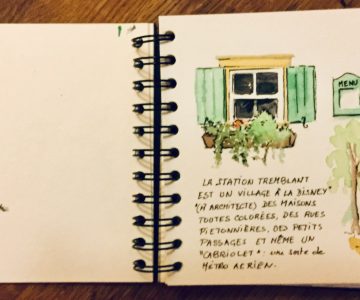 MENU
LA STATION TREMBLANT
EST UN VILLAGE À LA DISNEY"
(M ARCHITECTE) DES MAISONS
TOUTES COLORÉES, DES RUES
PIETONNIÈRES, DES PETITS
PASSAGES ET MÊME UN
"CABRIOLET" : une sorte de
MÉTRO AERIEN.